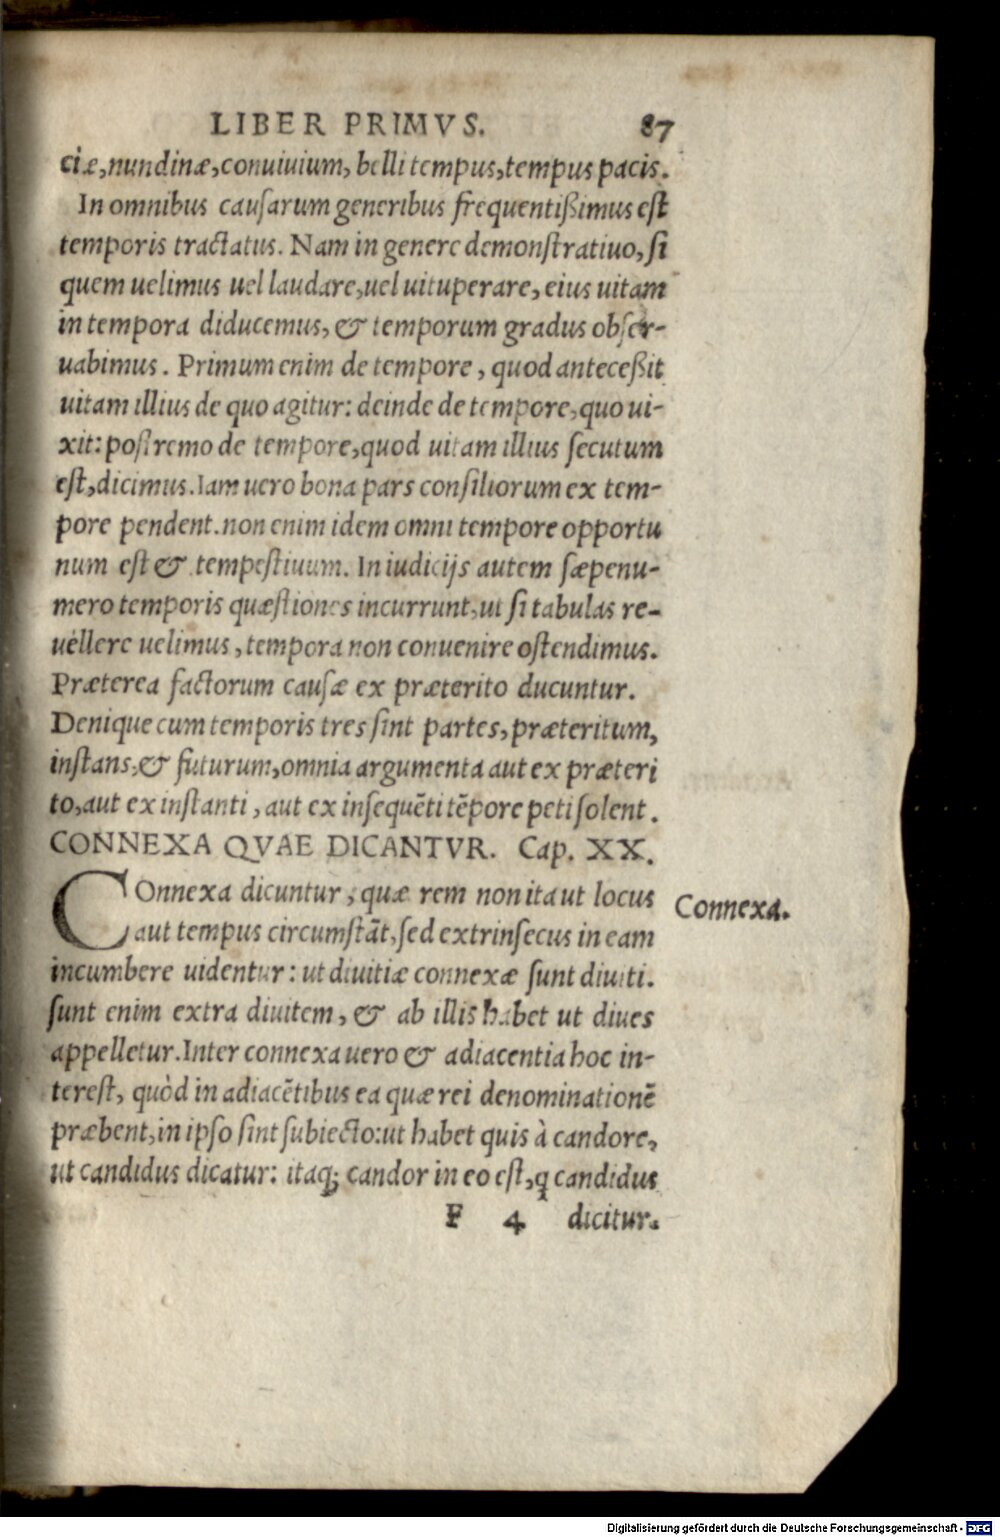 LIBER PRIMVS. 87
ciæ, nundinæ, conuiuium, belli tempus, tempus pacis.
In omnibus causarum generibus frequentißimus est
temporis tractatus. Nam in genere demonstratiuo, si
quem uelimus uel laudare, uel uituperare, eius uitam
in tempora diducemus, & temporum gradus obser-
uabimus. Primum enim de tempore, quod anteceßit
uitam illius de quo agitur: deinde de tempore, quo ui-
xit: postremo de tempore, quod uitam illius secutum
est, dicimus. Iam uero bona pars consiliorum ex tem-
pore pendent. non enim idem omni tempore opportu
num est & tempestiuum. In iudicijs autem sæpenu-
mero temporis quæstiones incurrunt, ut si tabulas re-
uellere uelimus, tempora non conuenire ostendimus.
Præterea factorum causæ ex præterito ducuntur.
Denique cum temporis tres sint partes, præteritum,
instans, & futurum, omnia argumenta aut ex præteri
to, aut ex instanti, aut ex insequēti tēpore peti solent.
CONNEXA QVAE DICANTVR. Cap. XX.
COnnexa dicuntur, quæ rem non ita ut locus
Connexa.
aut tempus circumstāt, sed extrinsecus in eam
incumbere uidentur: ut diuitiæ connexæ sunt diuiti.
sunt enim extra diuitem, & ab illis habet ut diues
appelletur. Inter connexa uero & adiacentia hoc in-
terest, quòd in adiacētibus ea quæ rei denominationē
præbent, in ipso sint subiecto: ut habet quis à candore,
ut candidus dicatur: itaq; candor in eo est, q candidus
F 4 dicitur.
Digitalisierung gefördert durch die Deutsche Forschungsgemeinschaft - DFG